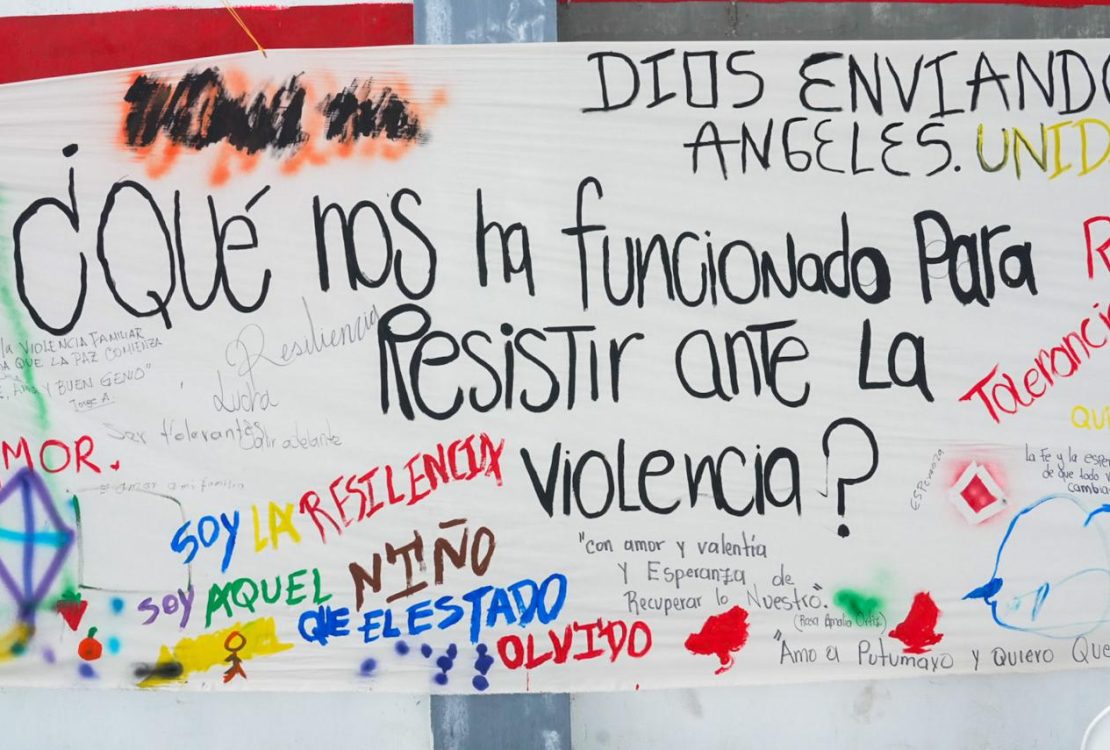 DIOS ENVIANDO
ANGELES. UNID
¿Qué nos ha funcionado Para
Resistir ante La
violencia?
la VIOLENCIA FAMILIAR
QUE LA PAZ COMIENZA
Y BUEN GENIO"
Jorge A.
Resiliencia
Lucha
Ser tolerantes
Salir adelante
MOR.
Toleranci
QU
ESPeranza
La Fe y la espe
de que todo
cambia
SOY LA RESILENCIA
SOY AQUEL NIÑO
QUE EL ESTADO
OLVIDO
"con amor y valentía
Y Esperanza de
Recuperar lo Nuestro".
(Rosa Amalia Ortiz)
"Amo el Putumayo y Quiero Que